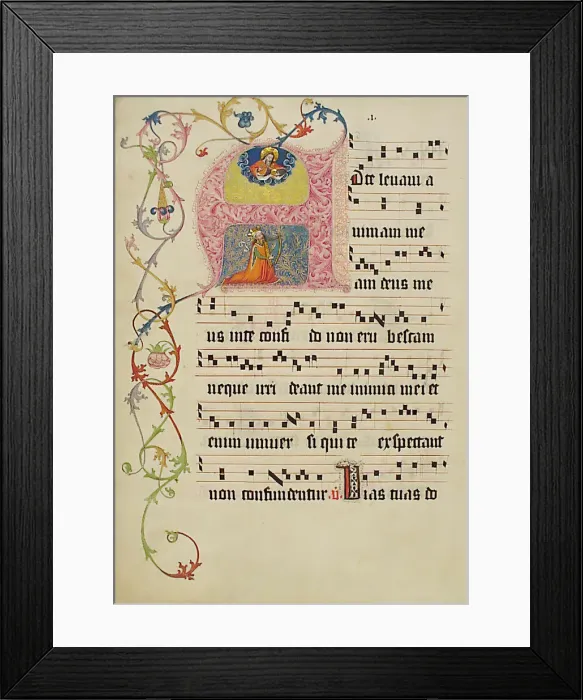 .1.
A Dte levavi a
nimam me
am deus me
us in te confi do non eru bescam
neque irri deant me inimici mei et
enim univer si qui te exspectant
non confundentur. v̈. Vias tuas do